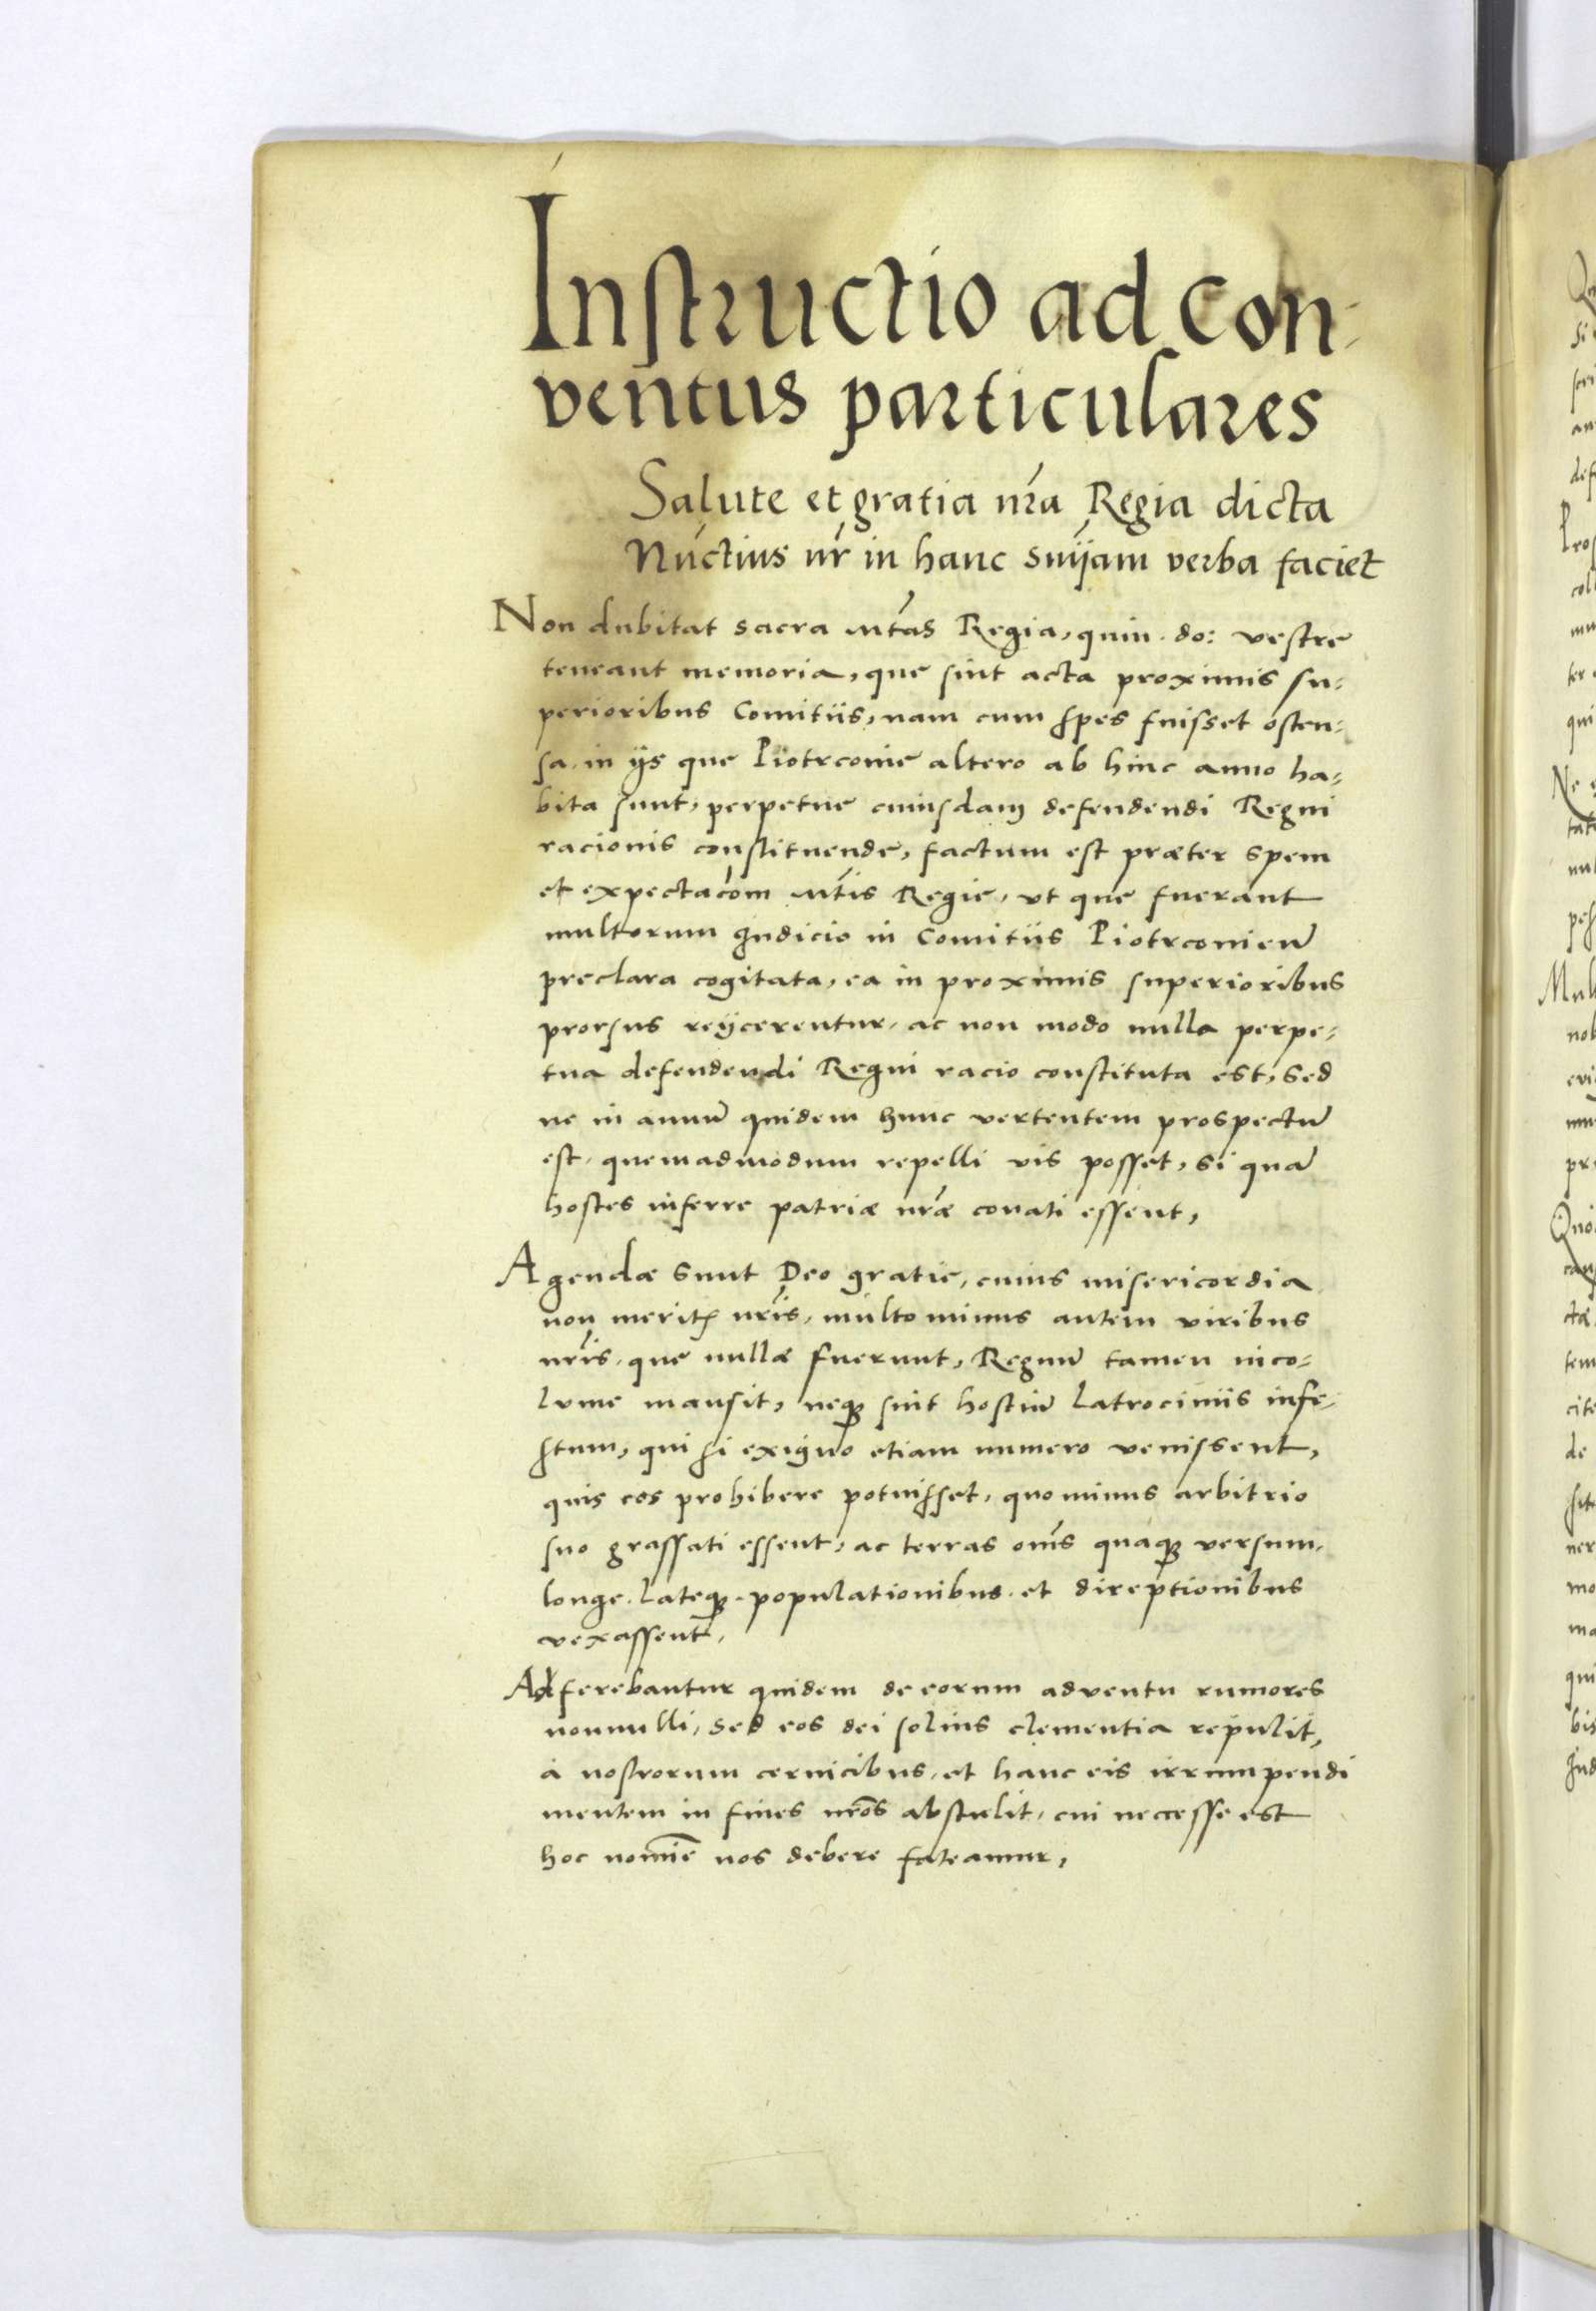 Instructio ad con-
ventus particulares
Salute et gratia nr̃a Regia dicta
Nuctius nr̃ in hanc snĩjam verba faciet
Non dubitat sacra Mtãs Regia, quin do: vestrę
teneant memoria, quę sint acta proximis su-
perioribus Comitiis, nam cum spes fuisset osten-
sa, in ijs quę Piotrconię altero ab hinc anno ha-
bita sunt, perpetuę cuiusdam defendendi Regni
racionis constituendę, factum est præter spem
et expectacõm Mtĩs Regię, vt quę fuerant
multorum Iudicio in Comitiis Piotrconien̄
preclara cogitata, ea in proximis superioribus
prorsus reijcerentur, ac non modo nulla perpe-
tua defendendi Regni racio constituta est, sed
ne in annũ quidem hunc vertentem prospectũ
est, quemadmodum repelli vis posset, si quã
hostes inferre patriæ nr̃æ conati essent,
Agendæ sunt Deo gratię, cuius misericordia
non meritꝭ nr̃is, multo minus autem viribus
nr̃is, quę nullæ fuerunt, Regnũ tamen inco-
lume mansit, neqꝫ suit hostiũ Latrociniis infe-
stum, qui si exiguo etiam numero venissent,
quis eos prohibere potuisset, quo minus arbitrio
suo grassati essent, ac terras om̃s quaqꝫ versum,
longe, lateqꝫ, populationibus, et direptionibus
vexassent,
Adferebantur quidem de eorum adventu rumores
nonnulli, sed eos dei solius clementia repulit,
à nostrorum cervicibus, et hanc eis irrumpendi
mentem in fines nr̃os abstulit, cui necesse est
hoc nomĩe nos debere fateamur,